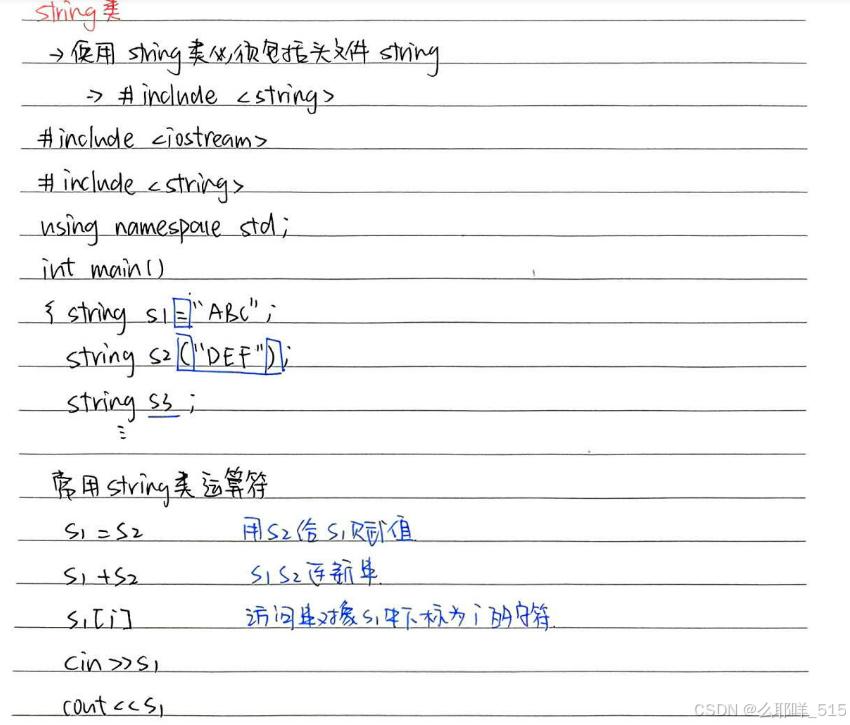 string类
→使用 string类必须包括头文件 string
→ #include <string>
#include <iostream>
#include <string>
using namespace std;
int main()
{ string s1 = "ABC";
string s2 ("DEF");
string s3 ;
⋮
常用string类运算符
s1 = s2 用s2给s1赋值
s1 + s2 s1 s2连新串
s1[i] 访问串对象s1中下标为i的字符
cin>>s1
cout<<s1
CSDN @么耶咩_515